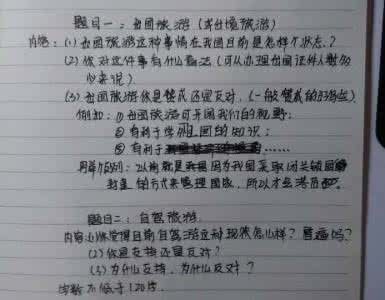 题目一:出国旅游(或出境旅游)
内容:(1)出国旅游这种事情在我国目前是怎样个状态?
(2)你对这件事有什么看法(可以办理出国证件人数多
少来说)
(3)出国旅游你是赞成还是反对,(一般赞成的好写些)
例如:①出国旅游可开阔我们的视野;
②有利于学 国的知识;
③有利于 ……
用举例:以前就是因为我国采取闭关锁国
封 方式来管理国家,所以才会落后
题目二:自驾旅游
内容:(1)你觉得目前自驾游这种现状怎么样?普遍吗?
(2)你是支持还是反对?
(3)为什么支持,为什么反对?
字数不低于120字.